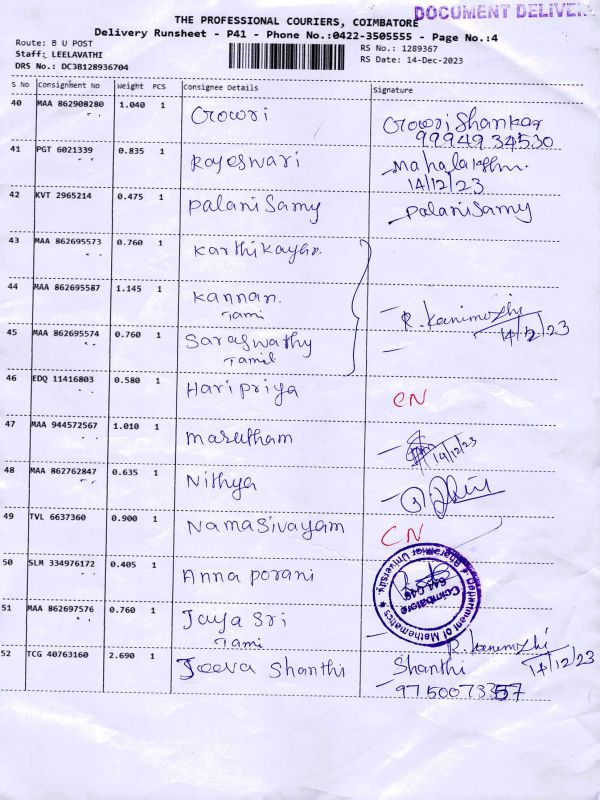 DOCUMENT DELIVER
THE PROFESSIONAL COURIERS, COIMBATORE
Delivery Runsheet - P41 - Phone No.:0422-3505555 - Page No.:4
Route: B U POST
Staff: LEELAVATHI
DRS No.: DC3B128936704
RS No.: 1289367
RS Date: 14-Dec-2023
S No Consignment No Weight PCS Consignee Details Signature
40 MAA 862908280 1.040 1 Gowri Gowri Shankar
9994934530
41 PGT 6021339 0.835 1 Rajeswari Mahalakshmi
14/12/23
42 KVT 2965214 0.475 1 Palani Samy Palani Samy
43 MAA 862695573 0.760 1 Karthikayan.
44 MAA 862695587 1.145 1 Kannan. R. Kanimozhi
Tami 14/12/23
45 MAA 862695574 0.760 1 Saraswathy
Tamil
46 EDQ 11416803 0.580 1 Haripriya CN
47 MAA 944572567 1.010 1 Marutham 14/12/23
48 MAA 862762847 0.635 1 Nithya
49 TVL 6637360 0.900 1 Namasivayam CN
50 SLM 334976172 0.405 1 Anna Porani
Department of Mathematics
Bharathiar University
Coimbatore
641 046
51 MAA 862697576 0.760 1 Jaya Sri R. Kanimozhi
Tami 14/12/23
52 TCG 40763160 2.690 1 Jeeva Shanthi Shanthi